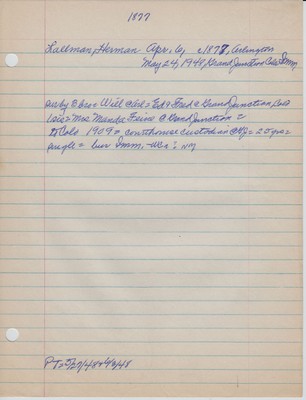 1877
Lallman, Herman Apr. 6, c1878, Arlington
May 24, 1948, Grand Junction Colo Imm
surby @ bro = Will @ Neb = Ed & Fred @ Grand Junction, Colo
1 sis = Mrs. Manda Freine @ Grand Junction =
to Colo 1909 = courthouse custodian @ GJ = 25 yrs =
single = bur Imm. - 
PT = 5/27/48 + 6/3/48